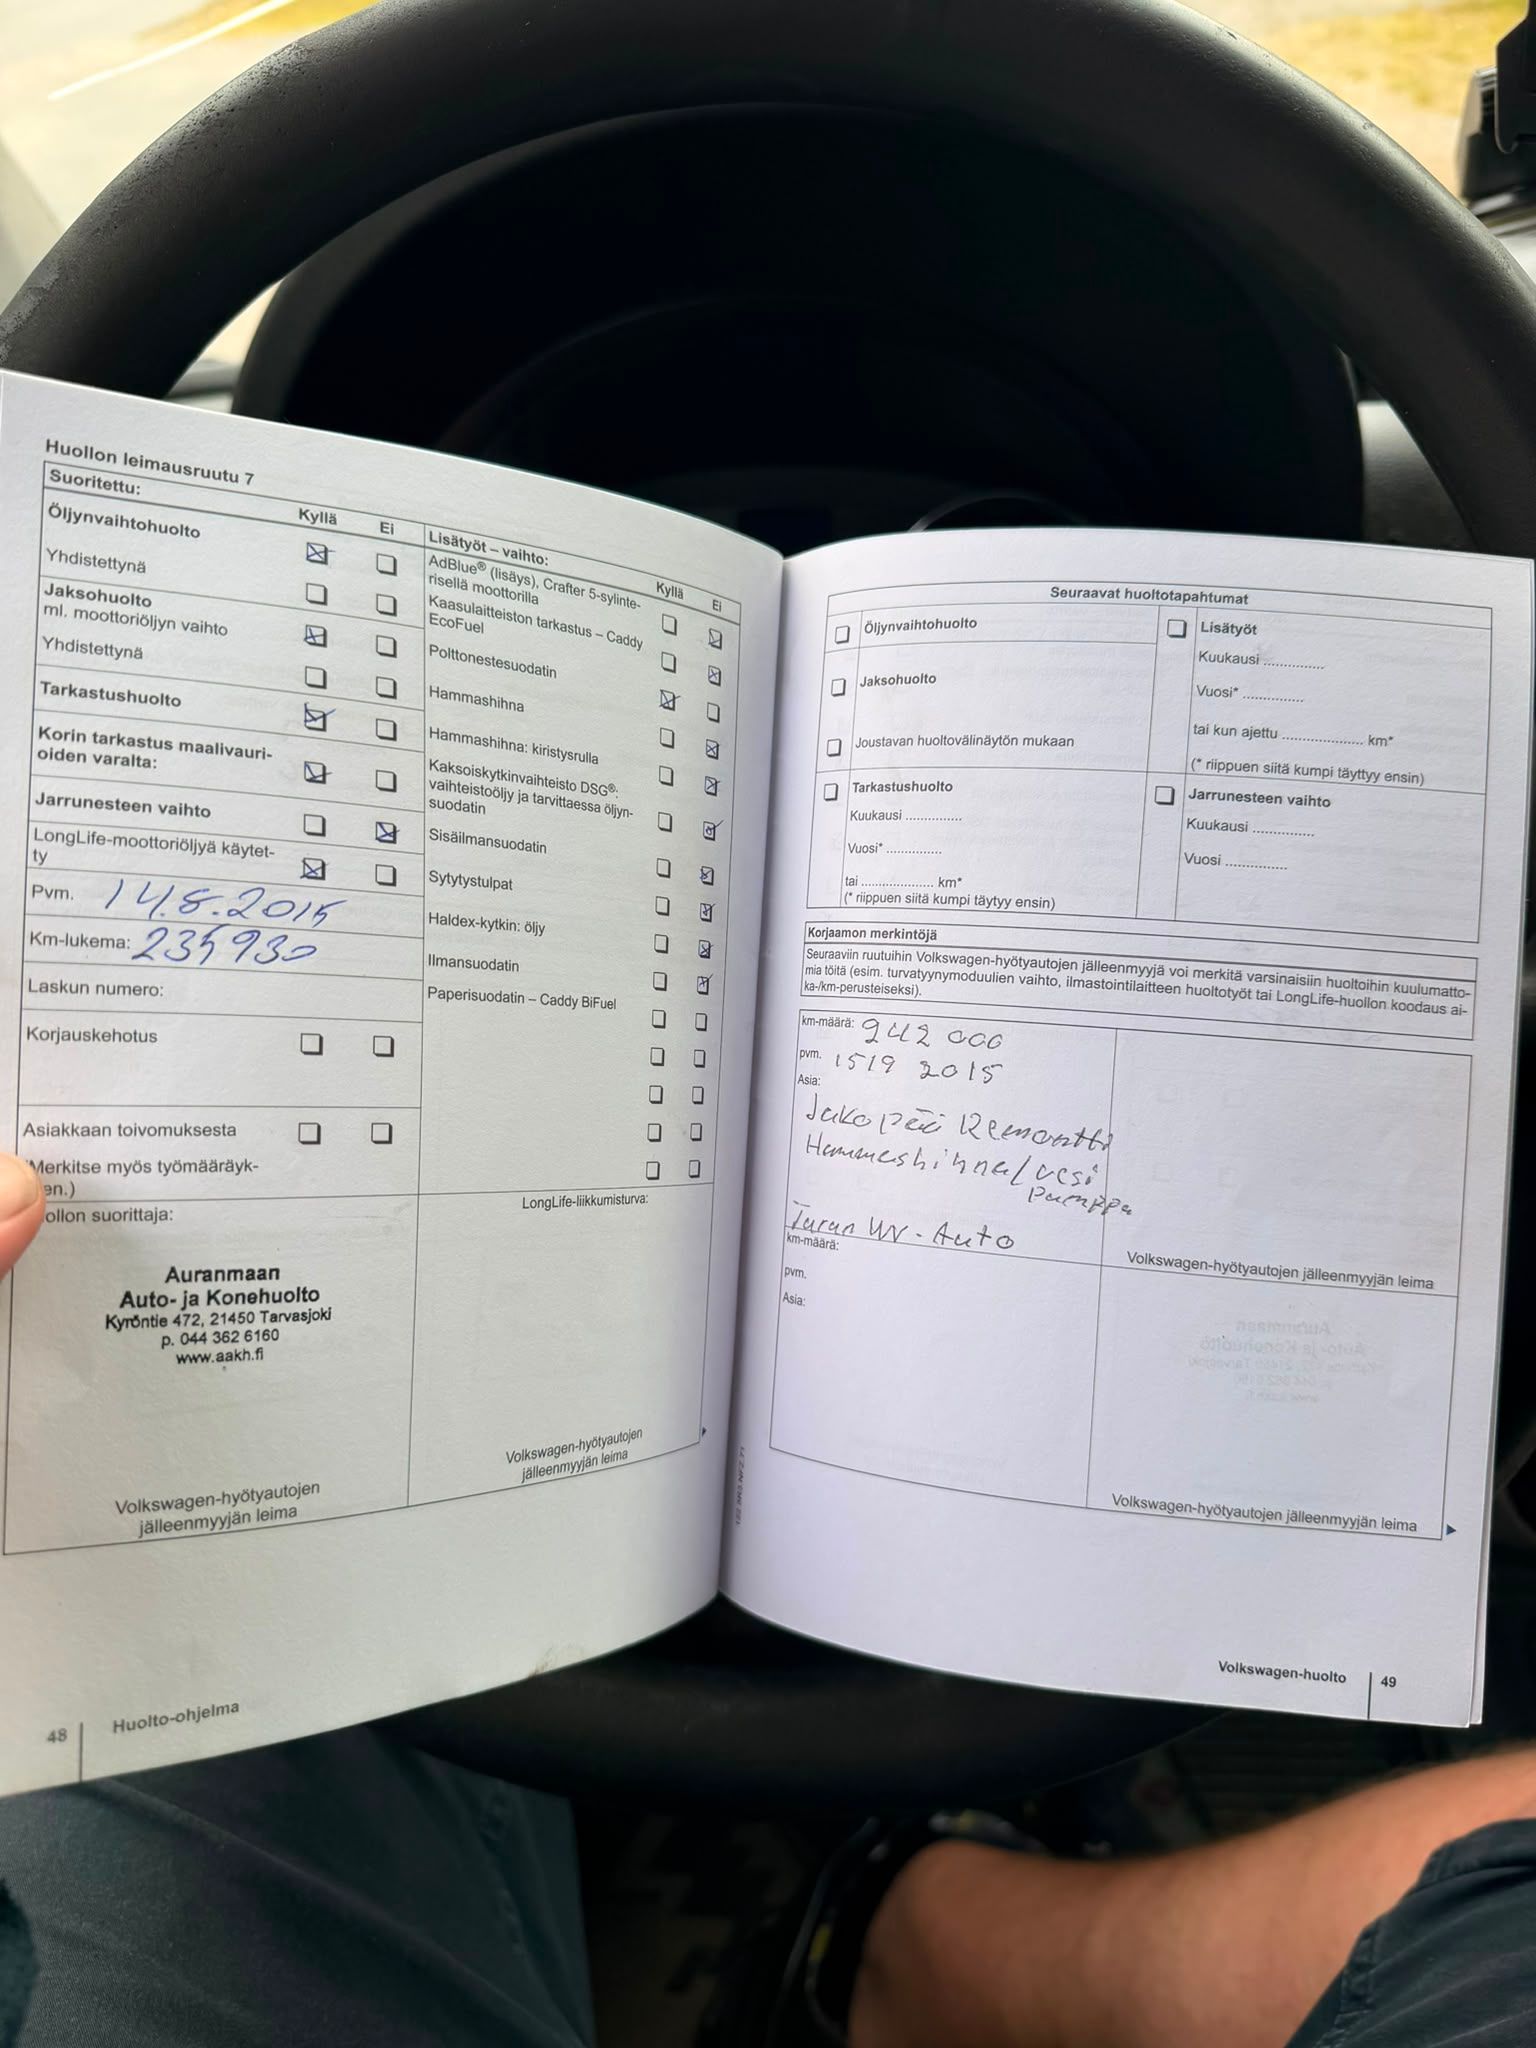 Huollon leimausruutu 7
Suoritettu:
Kyllä Ei
Öljynvaihtohuolto
Yhdistettynä
Jaksohuolto
ml. moottoriöljyn vaihto
Yhdistettynä
Tarkastushuolto
Korin tarkastus maalivauri-
oiden varalta:
Jarrunesteen vaihto
LongLife-moottoriöljyä käytet-
ty
Pvm. 14.8.2015
Km-lukema: 235930
Laskun numero:
Korjauskehotus
Asiakkaan toivomuksesta
Merkitse myös työmääräyk-
en.)
ollon suorittaja:
Auranmaan
Auto- ja Konehuolto
Kyröntie 472, 21450 Tarvasjoki
p. 044 362 6160
www.aakh.fi
Volkswagen-hyötyautojen
jälleenmyyjän leima
Lisätyöt – vaihto:
Kyllä Ei
AdBlue® (lisäys), Crafter 5-sylinte-
risellä moottorilla
Kaasulaitteiston tarkastus – Caddy
EcoFuel
Polttonestesuodatin
Hammashihna
Hammashihna: kiristysrulla
Kaksoiskytkinvaihteisto DSG®:
vaihteistoöljy ja tarvittaessa öljyn-
suodatin
Sisäilmansuodatin
Sytytystulpat
Haldex-kytkin: öljy
Ilmansuodatin
Paperisuodatin – Caddy BiFuel
LongLife-liikkumisturva:
Volkswagen-hyötyautojen
jälleenmyyjän leima
48 Huolto-ohjelma
Seuraavat huoltotapahtumat
Öljynvaihtohuolto
Jaksohuolto
Joustavan huoltovälinäytön mukaan
Tarkastushuolto
Kuukausi ..............
Vuosi* ..............
tai .................... km*
(* riippuen siitä kumpi täytyy ensin)
Lisätyöt
Kuukausi ...............
Vuosi* ...............
tai kun ajettu .................... km*
(* riippuen siitä kumpi täyttyy ensin)
Jarrunesteen vaihto
Kuukausi ...............
Vuosi ...............
Korjaamon merkintöjä
Seuraaviin ruutuihin Volkswagen-hyötyautojen jälleenmyyjä voi merkitä varsinaisiin huoltoihin kuulumatto-
mia töitä (esim. turvatyynymoduulien vaihto, ilmastointilaitteen huoltotyöt tai LongLife-huollon koodaus ai-
ka-/km-perusteiseksi).
km-määrä: 242 000
pvm. 1519 2015
Asia:
Jakopää Remontti
Hammashihna/vesi
Pumppu
WV-Auto
Volkswagen-hyötyautojen jälleenmyyjän leima
km-määrä:
pvm.
Asia:
Volkswagen-hyötyautojen jälleenmyyjän leima
Volkswagen-huolto 49